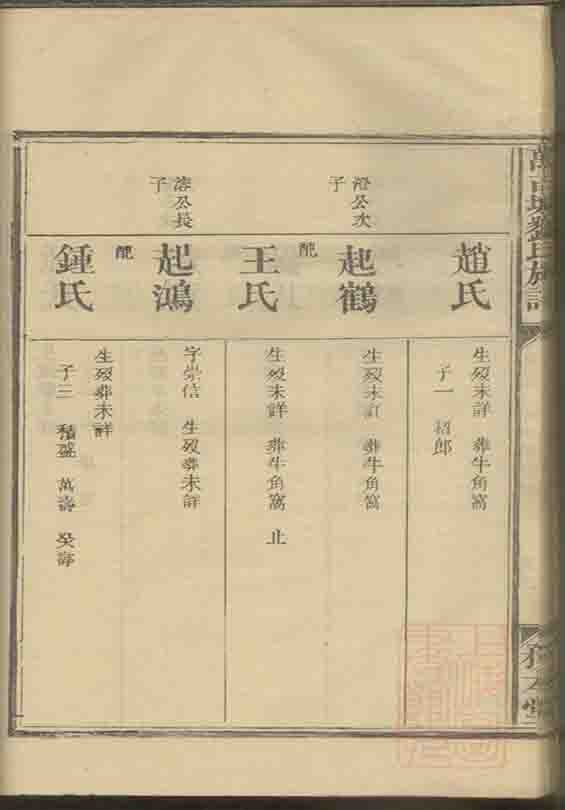 趙氏
生歿未詳 葬牛角窩
子一 紹郎
澄公次
子
起鶴
生歿未詳 葬牛角窩
配
王氏
生歿未詳 葬牛角窩 止
溶公長
子
起鴻
字崇信 生歿葬未詳
配
鍾氏
生歿葬未詳
子三 積盛 萬壽 癸壽